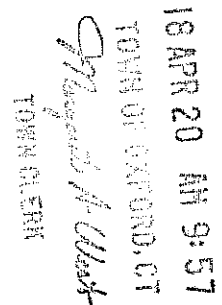 18 APR 20 AM 9:57
TOWN OF OXFORD, CT
TOWN CLERK